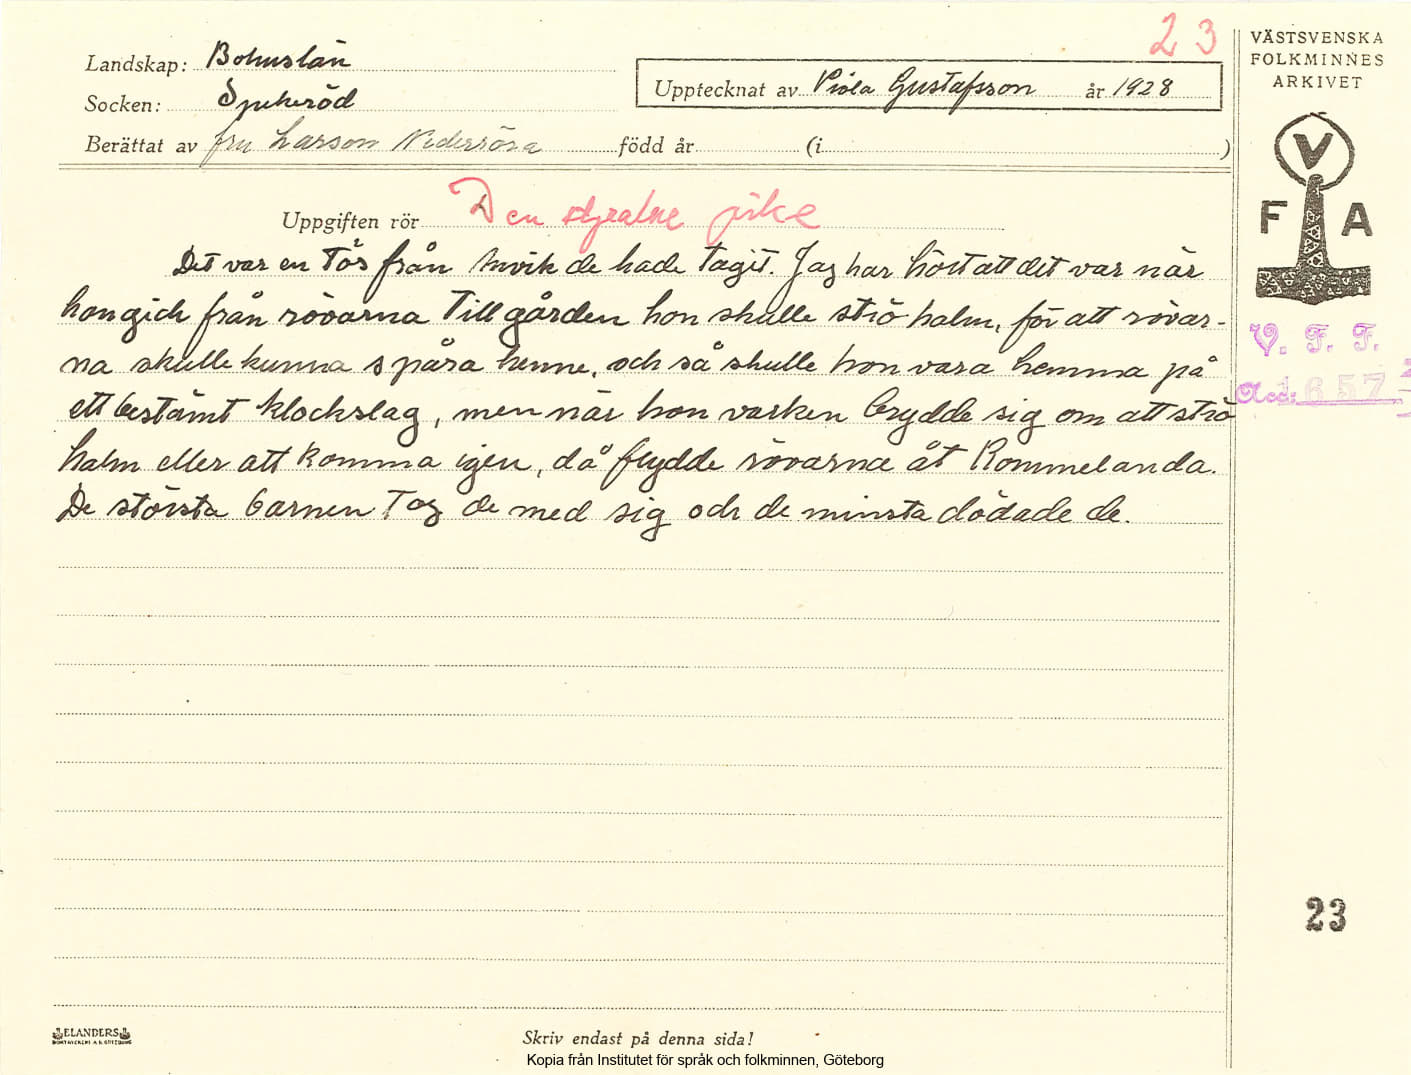 23
VÄSTSVENSKA
FOLKMINNES
ARKIVET
Landskap: Bohuslän
Socken: Spekeröd
Upptecknat av Viola Gustafsson år 1928
Berättat av fru Larson Nederröra född år (i )
V
F A
Uppgiften rör Den stjealne pike
Det var en tös från Anvik de hade tagit. Jag har hört att det var när
hon gick från rövarna till gården hon skulle strö halm, för att rövar-
na skulle kunna spåra henne, och så skulle hon vara hemma på
ett bestämt klockslag, men när hon varken brydde sig om att strö
halm eller att komma igen, då flydde rövarna åt Rommelanda.
De största barnen tog de med sig och de minsta dödade de.
V. F. F.
Acc: 1657
23
ELANDERS
BOKTRYCKERI A.B. GÖTEBORG
Skriv endast på denna sida!
Kopia från Institutet för språk och folkminnen, Göteborg